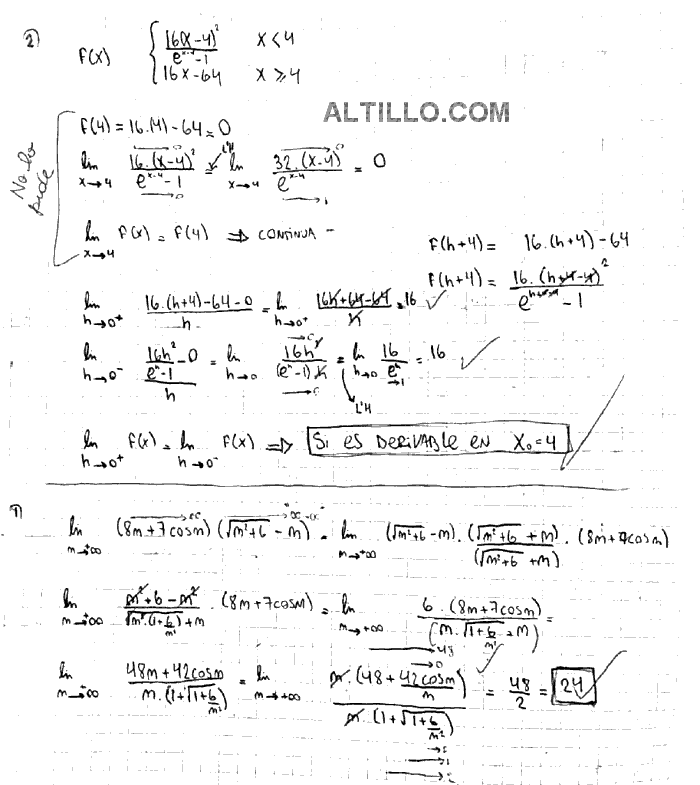 2) F(x) { 16(x-4)² / e^(x-4) - 1 x < 4
16x-64 x ⩾ 4
ALTILLO.COM
No lo pide
F(4) = 16.(4) - 64 = 0
lim x→4 16.(x-4)² →0 / e^(x-4) - 1 →0 = L'H lim x→4 32.(x-4) →0 / e^(x-4) →1 = 0
lim x→4 F(x) = F(4) ⇒ CONTINUA -
F(h+4) = 16.(h+4) - 64
F(h+4) = 16.(h+4-4)² / e^(h+4-4) - 1
lim h→0⁺ 16.(h+4)-64-0 / h = lim h→0⁺ 16h+64-64 / h = 16 ✓
lim h→0⁻ (16h² / e^h-1 - 0) / h = lim h→0 16h² →0 / (e^h-1).h →0 = L'H lim h→0 16 / e^h →1 = 16 ✓
lim h→0⁺ F(x) = lim h→0⁻ F(x) ⇒ Si ES DERIVABLE EN X₀=4
1) lim m→+∞ (8m+7cosm) →∞ (√m²+6 - m) →"∞-∞" = lim m→+∞ (√m²+6 - m) . (√m²+6 + m) / (√m²+6 + m) . (8m+7cosm)
lim m→+∞ m²+6-m² / √m².(1+6/m²) + m . (8m+7cosm) = lim m→+∞ 6.(8m+7cosm) / (m.√1+6/m² + m) =
lim m→+∞ 48m+42cosm / m.(1+√1+6/m²) = lim m→+∞ m.(48 + 42cosm/m) →0 →48 / m.(1+√1+6/m²) →0 →1 →2 = 48/2 = 24 ✓